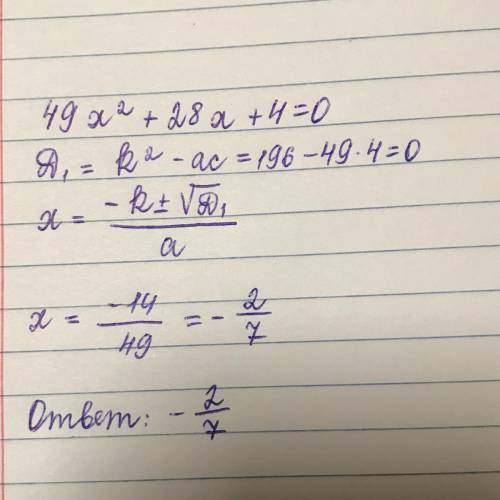 49x² + 28x + 4 = 0
D₁ = k² - ac = 196 - 49·4 = 0
x = (-k ± √D₁)/a
x = -14/49 = -2/7
Ответ: -2/7